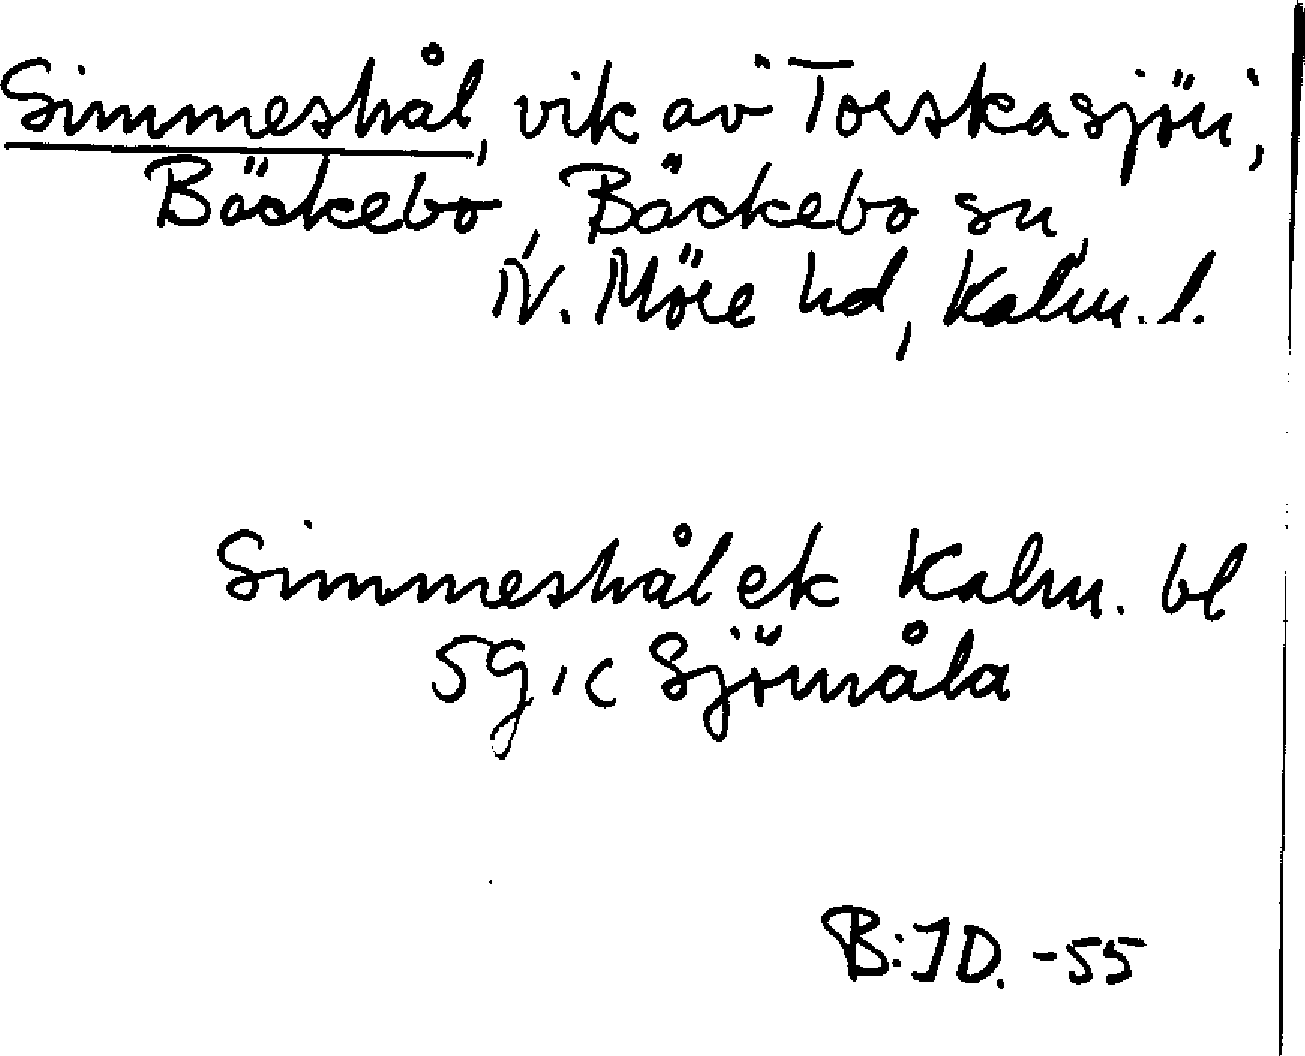 Simmeshål, vik av "Torskasjön",
Bäckebo, Bäckebo sn,
N. Möre hd, Kalm. l.
Simmeshål ek Kalm. bl
5g,c Sjömåla
B:JD. -55